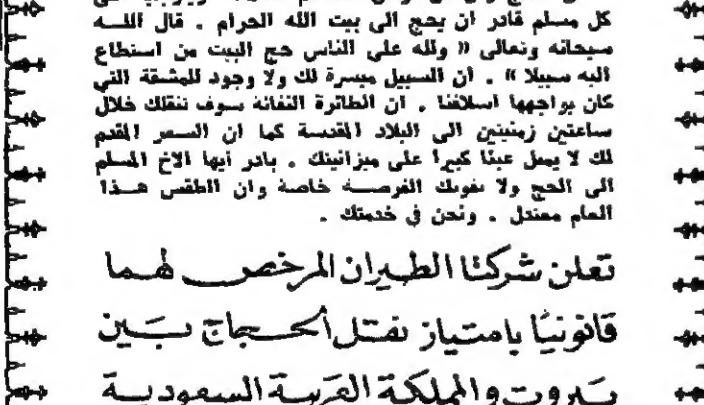 كل مسلم قادر ان يحج الى بيت الله الحرام . قال اللـه
سبحانه وتعالى « ولله على الناس حج البيت من استطاع
اليه سبيلا » . ان السبيل ميسرة لك ولا وجود للمشقة التي
كان يواجهها اسلافنا . ان الطائرة النفاثة سوف تنقلك خلال
ساعتين زمنيتين الى البلاد المقدسة كما ان السعر المقدم
لك لا يمثل عبئا كبيرا على ميزانيتك . بادر ايها الاخ المسلم
الى الحج ولا تفوتك الفرصـــة خاصة وان الطقس هـــذا
العام معتدل . ونحن في خدمتك .
تعلن شركتا الطيران المرخص لهما
قانونيًا بامتياز نقل الحجاج بين
بيروت والمملكة العربية السعودية